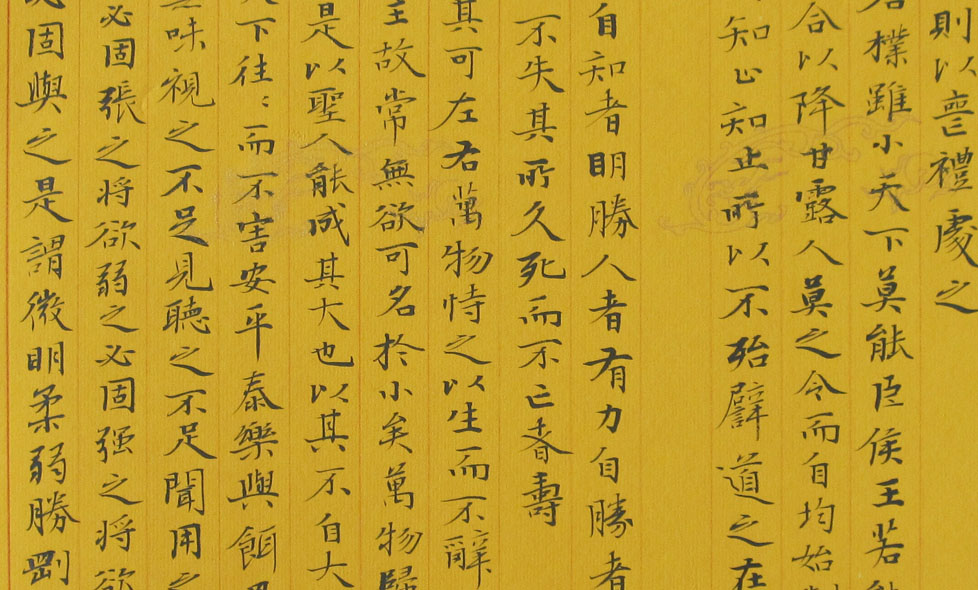 則以喪禮處之
樸雖小天下莫能臣侯王若
合以降甘露人莫之令而自均始
知止知止所以不殆譬道之在
自知者明勝人者有力自勝者
不失其所久死而不亡者壽
其可左右萬物恃之以生而不辭
王故常無欲可名於小矣萬物歸
是以聖人能成其大也以其不自大
下往:而不害安平 泰樂與餌
味視之不足見聽之不足聞用之
必固張之將欲弱之必固强之將欲
固與之是謂微明柔弱勝剛